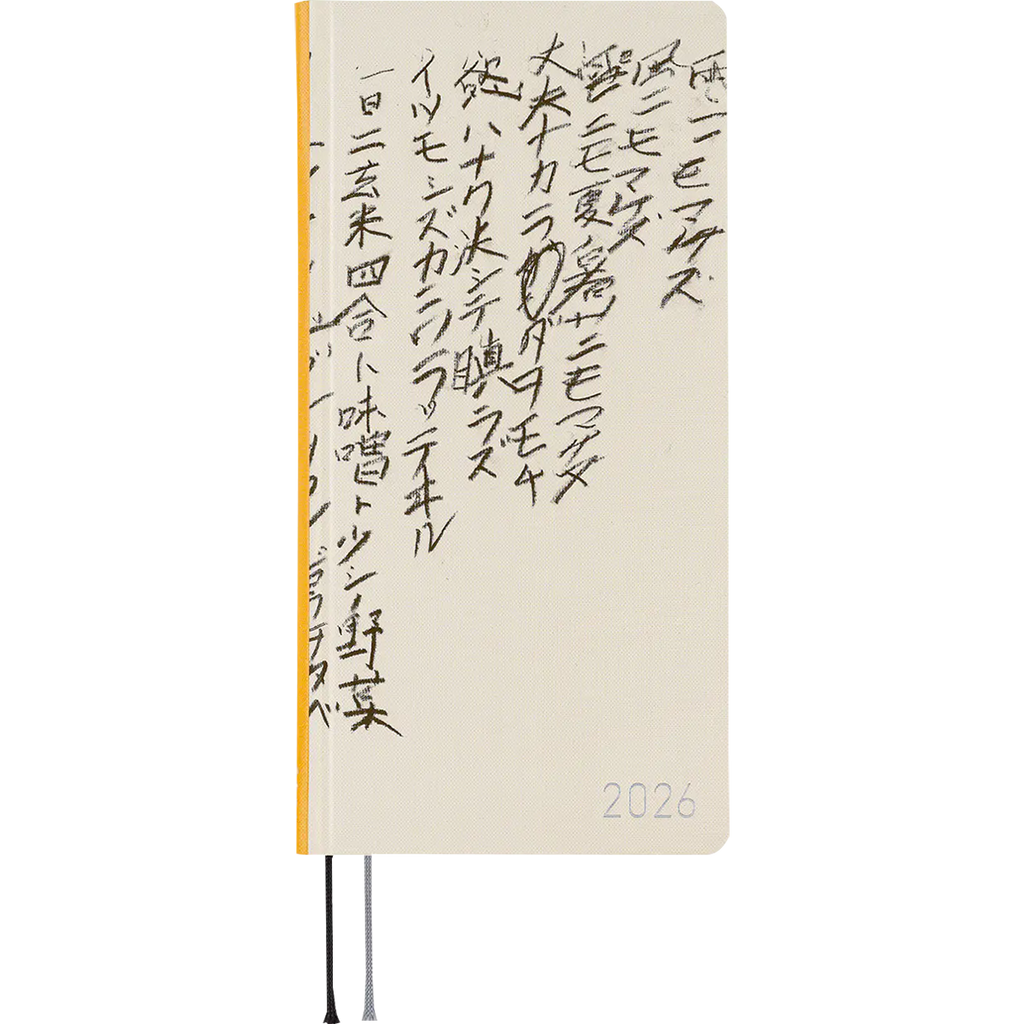 雨ニモマケズ
風ニモマケズ
雪ニモ夏ノ暑サニモマケヌ
丈夫ナカラダヲモチ
慾ハナク
決シテ瞋ラズ
イツモシズカニワラッテヰル
一日ニ玄米四合ト
味噌ト少シノ野菜
タベ
2026